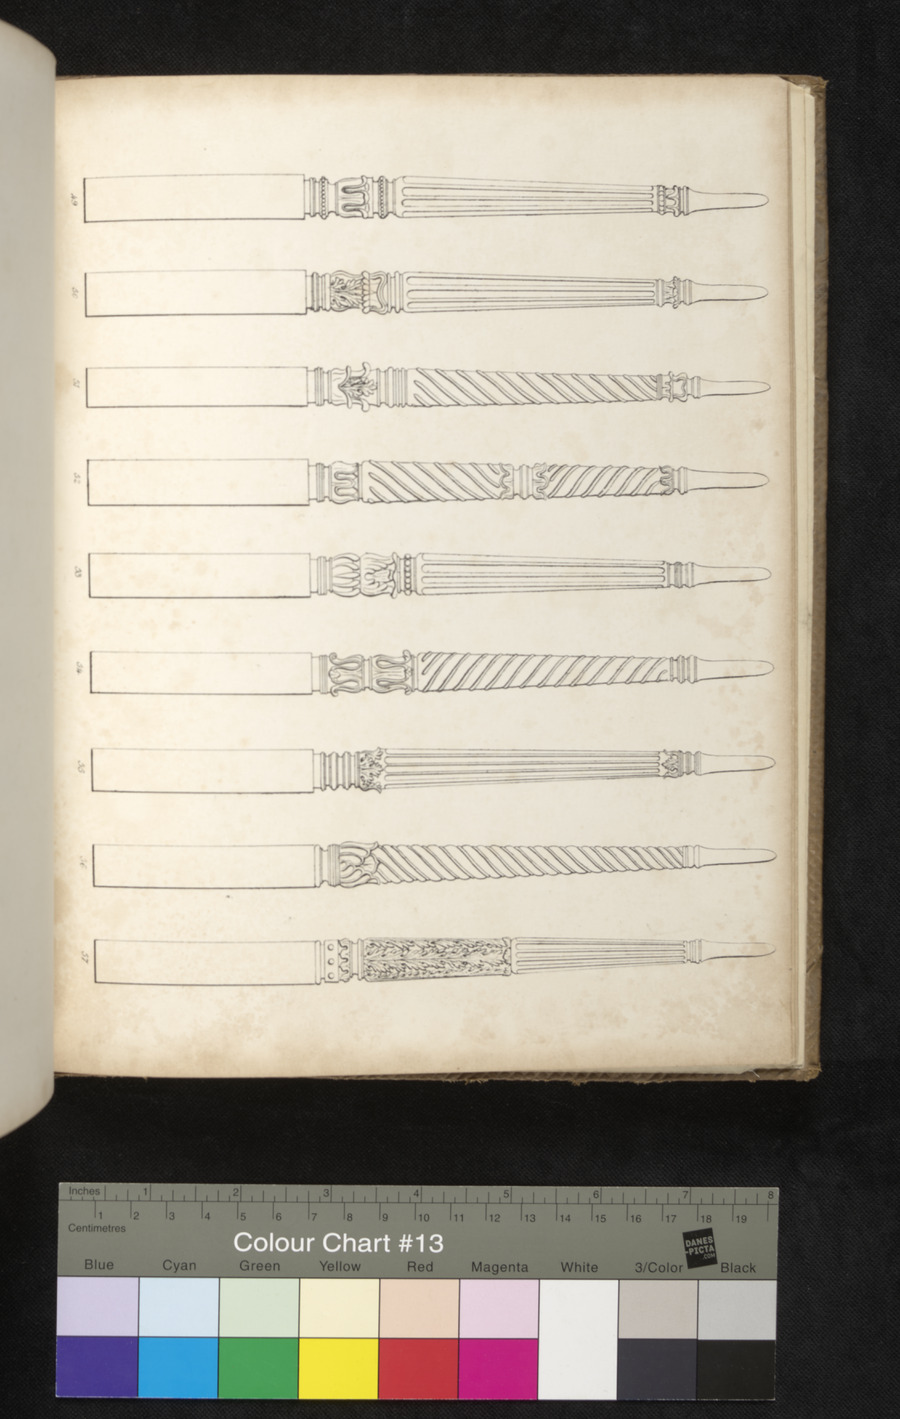 49
50
51
52
53
54
55
56
57
Inches 1 2 3 4 5 6 7 8
1 2 3 4 5 6 7 8 9 10 11 12 13 14 15 16 17 18 19
Centimetres
Colour Chart #13
DANES
-PICTA
.COM
Blue Cyan Green Yellow Red Magenta White 3/Color Black